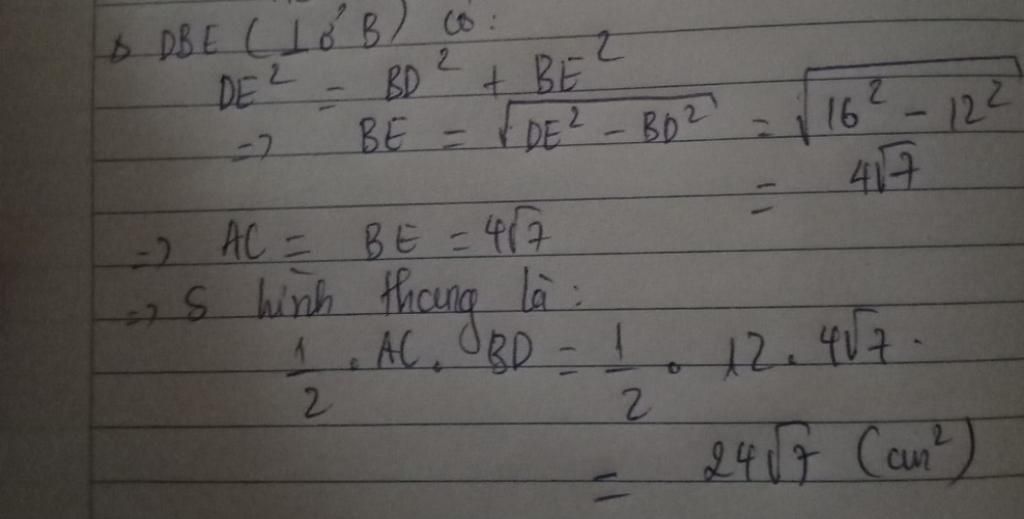 Δ DBE (⊥ ở B) có:
DE² = BD² + BE²
=> BE = √(DE² - BD²) = √(16² - 12²)
= 4√7
=> AC = BE = 4√7
=> S hình thang là:
1/2 . AC . BD = 1/2 . 12 . 4√7.
= 24√7 (cm²)